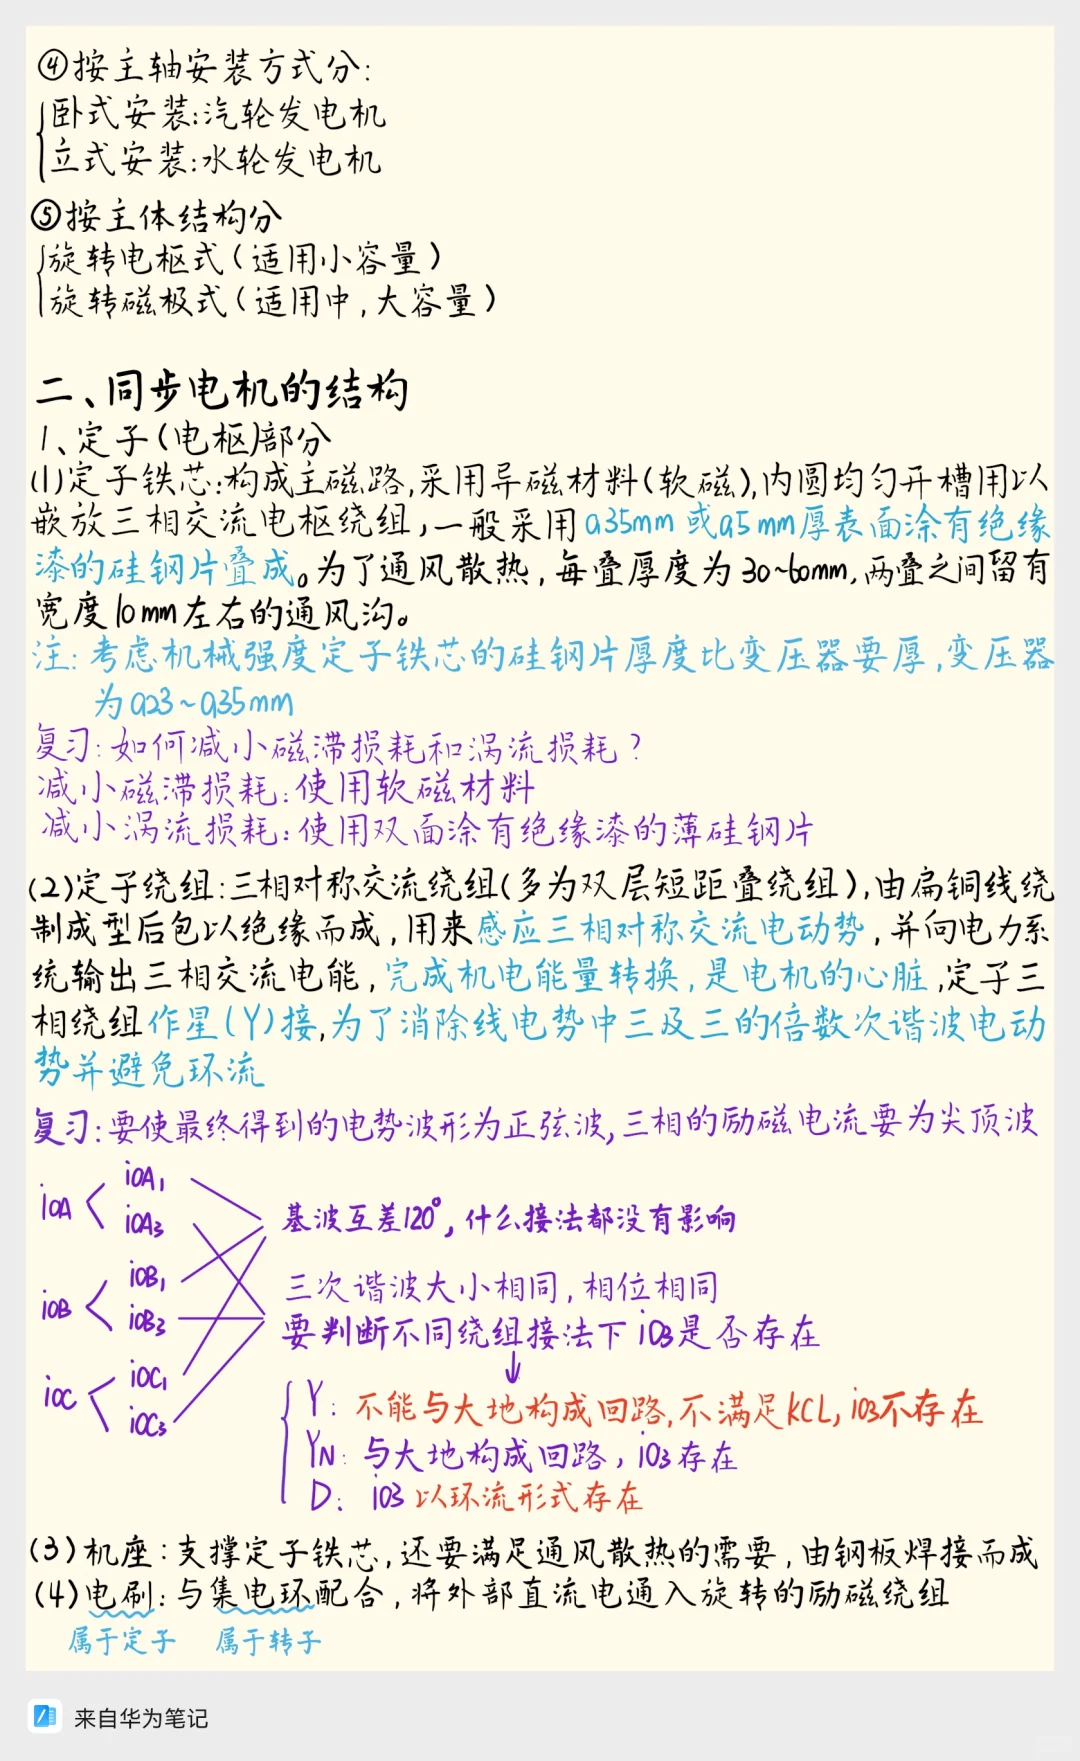 ④按主轴安装方式分:
卧式安装:汽轮发电机
立式安装:水轮发电机
⑤按主体结构分
旋转电枢式(适用小容量)
旋转磁极式(适用中,大容量)
二、同步电机的结构
1、定子(电枢)部分
(1)定子铁芯:构成主磁路,采用导磁材料(软磁),内圆均匀开槽用以
嵌放三相交流电枢绕组,一般采用0.35mm或0.5mm厚表面涂有绝缘
漆的硅钢片叠成。为了通风散热,每叠厚度为30~60mm,两叠之间留有
宽度10mm左右的通风沟。
注:考虑机械强度定子铁芯的硅钢片厚度比变压器要厚,变压器
为0.23~0.35mm
复习:如何减小磁滞损耗和涡流损耗?
减小磁滞损耗:使用软磁材料
减小涡流损耗:使用双面涂有绝缘漆的薄硅钢片
(2)定子绕组:三相对称交流绕组(多为双层短距叠绕组),由扁铜线绕
制成型后包以绝缘而成,用来感应三相对称交流电动势,并向电力系
统输出三相交流电能,完成机电能量转换,是电机的心脏,定子三
相绕组作星(Y)接,为了消除线电势中三及三的倍数次谐波电动
势并避免环流
复习:要使最终得到的电势波形为正弦波,三相的励磁电流要为尖顶波
i0A
i0A1
i0A3
i0B
i0B1
i0B3
i0C
i0C1
i0C3
基波互差120°,什么接法都没有影响
三次谐波大小相同,相位相同
要判断不同绕组接法下i03是否存在
↓
Y:不能与大地构成回路,不满足KCL,i03不存在
YN:与大地构成回路,i03存在
D:i03以环流形式存在
(3)机座:支撑定子铁芯,还要满足通风散热的需要,由钢板焊接而成
(4)电刷:与集电环配合,将外部直流电通入旋转的励磁绕组
属于定子 属于转子
来自华为笔记